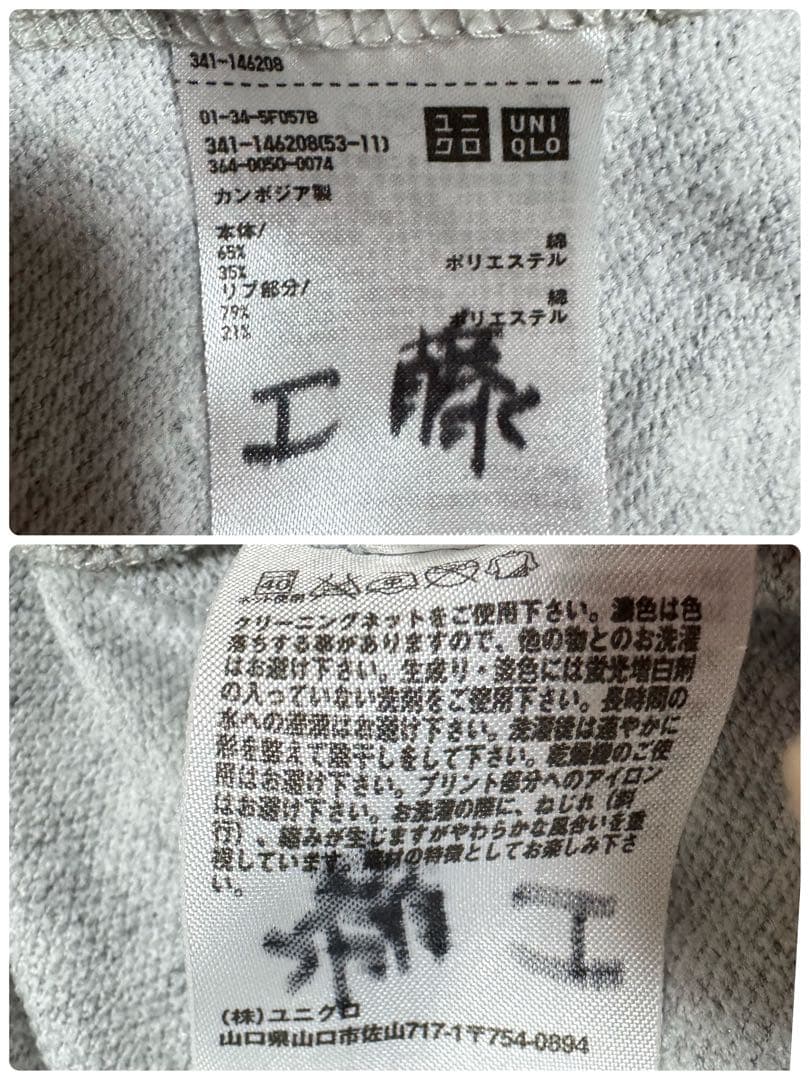 341-146208
01-34-5F057B
341-146208(53-11)
364-0050-0074
ユニクロ
UNI
QLO
カンボジア製
本体/
65% 綿
35% ポリエステル
リブ部分/
79% 綿
21% ポリエステル
工藤
40
ネット使用
クリーニングネットをご使用下さい。濃色は色
落ちする事がありますので、他の物とのお洗濯
はお避け下さい。生成り・淡色には蛍光増白剤
の入っていない洗剤をご使用下さい。長時間の
水への浸漬はお避け下さい。洗濯後は速やかに
形を整えて陰干しをして下さい。乾燥機のご使
用はお避け下さい。プリント部分へのアイロン
はお避け下さい。お洗濯の際に、ねじれ(斜
行)、縮みが生じますがやわらかな風合いを重
視しています。素材の特徴としてお楽しみ下さ
い。
(株)ユニクロ
山口県山口市佐山717-1〒754-0894